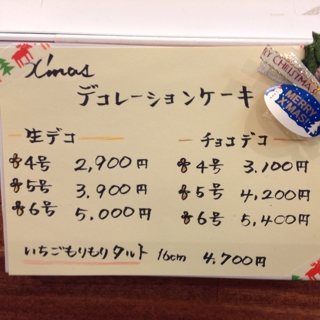 X'mas
デコレーションケーキ
生デコ
4号 2,900円
5号 3,900円
6号 5,000円
チョコデコ
4号 3,100円
5号 4,200円
6号 5,400円
いちごもりもりタルト 16cm 4,700円
MERRY
X'MAS!